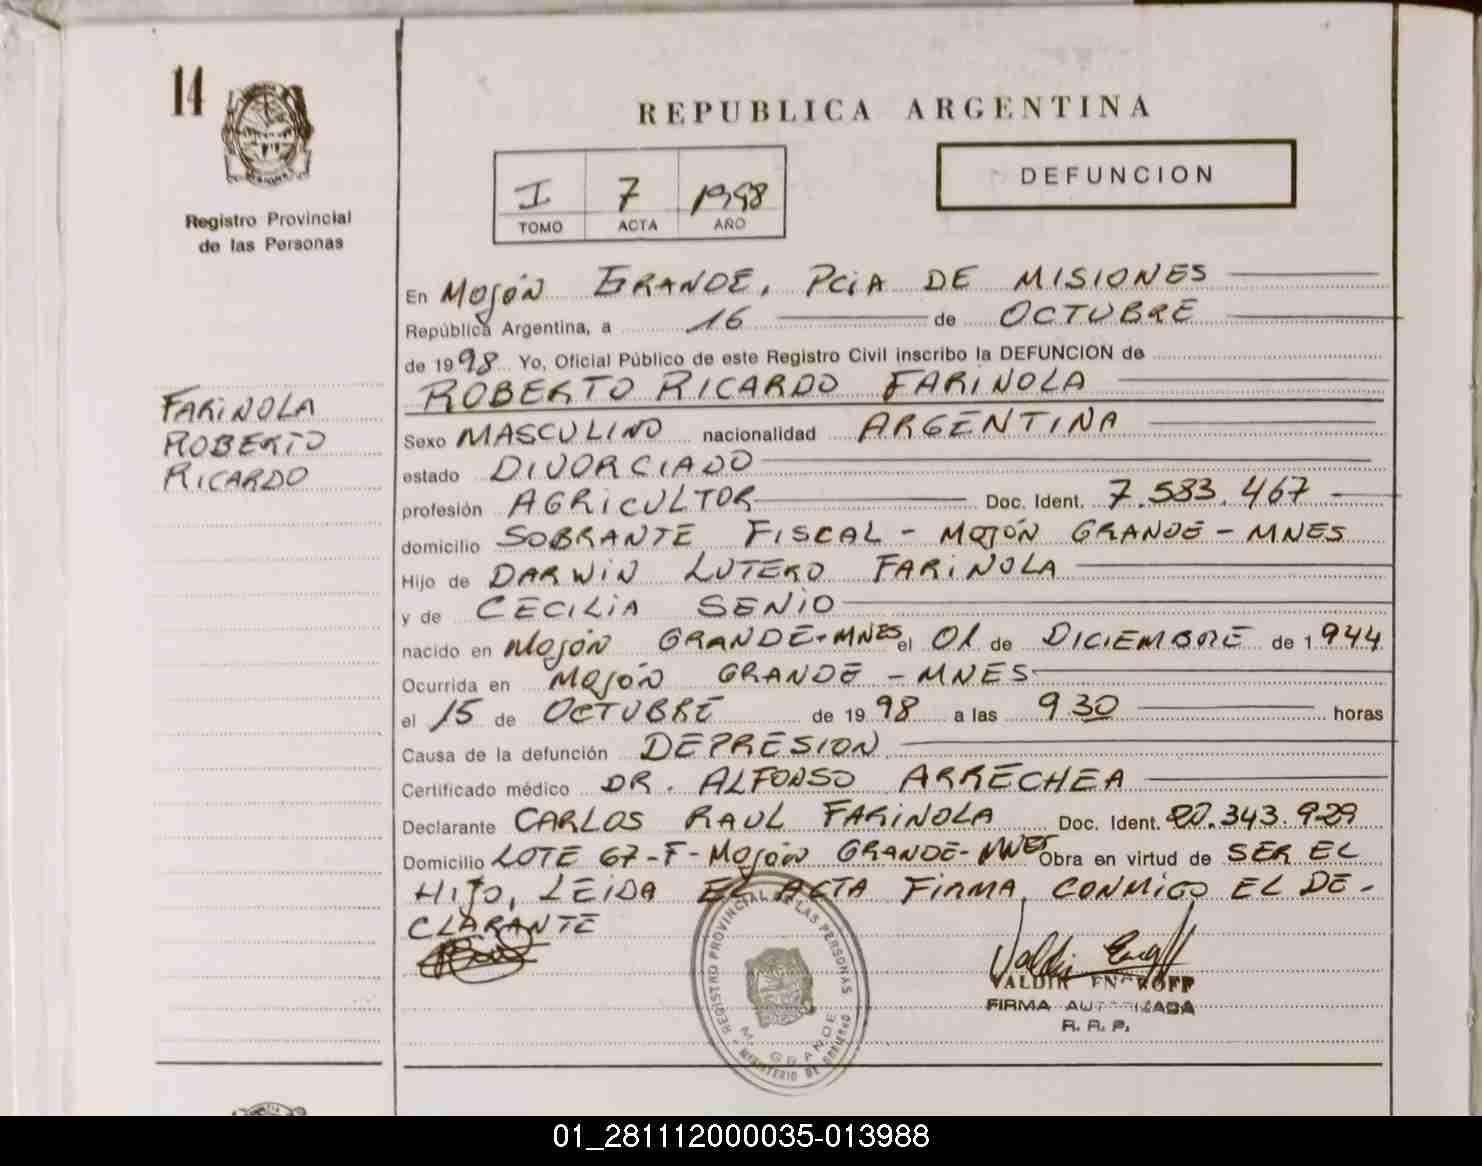 14
REPUBLICA ARGENTINA
DEFUNCION
I 7 1998
TOMO ACTA AÑO
Registro Provincial
de las Personas
FARINOLA
ROBERTO
RICARDO
En MOJÓN GRANDE, PCIA DE MISIONES
República Argentina, a 16 de OCTUBRE
de 1998 Yo, Oficial Público de este Registro Civil inscribo la DEFUNCION de
ROBERTO RICARDO FARINOLA
Sexo MASCULINO nacionalidad ARGENTINA
estado DIVORCIADO
profesión AGRICULTOR Doc. Ident. 7.583.467
domicilio SOBRANTE FISCAL - MOJÓN GRANDE - MNES
Hijo de DARWIN LUTERO FARINOLA
y de CECILIA SENIO
nacido en MOJÓN GRANDE-MNES el 01 de DICIEMBRE de 1944
Ocurrida en MOJÓN GRANDE - MNES
el 15 de OCTUBRE de 1998 a las 930 horas
Causa de la defunción DEPRESION
Certificado médico DR. ALFONSO ARRECHEA
Declarante CARLOS RAUL FARINOLA Doc. Ident. 20.343.929
Domicilio LOTE 67-F-MOJÓN GRANDE-MNES Obra en virtud de SER EL
HIJO, LEIDA EL ACTA FIRMA CONMIGO EL DE-
CLARANTE
REGISTRO PROVINCIAL DE LAS PERSONAS
M. GRANDE
MINISTERIO DE GOBIERNO
VALDIR ENGROFF
FIRMA AUTORIZADA
R. R. P.
01_281112000035-013988